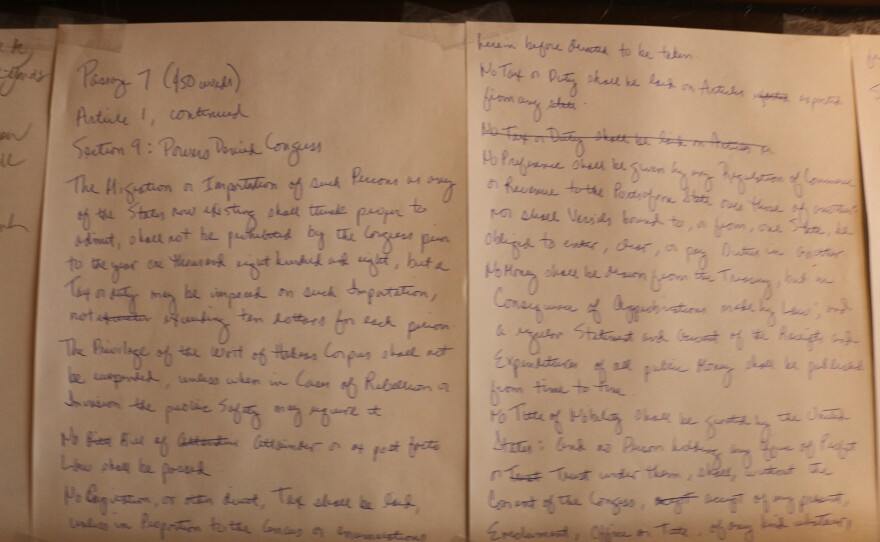 Passage 7 (450 words)
Article 1, continued
Section 9: Powers Denied Congress
The Migration or Importation of such Persons as any
of the States now existing shall think proper to
admit, shall not be prohibited by the Congress prior
to the year one thousand eight hundred and eight, but a
Tax or duty may be imposed on such Importation,
not exceeding ten dollars for each person
The Privilege of the Writ of Habeas Corpus shall not
be suspended, unless when in Cases of Rebellion or
Invasion the public Safety may require it
No Bill of Attainder or ex post facto
Law shall be passed
No Capitation, or other direct, Tax shall be laid,
unless in Proportion to the Census or enumerations
herein before directed to be taken
No Tax or Duty shall be laid on Articles exported
from any state.
No Tax or Duty shall be laid on Articles
No Preference shall be given by any Regulation of Commerce
or Revenue to the Ports of one State over those of another
nor shall Vessels bound to, or from, one State, be
obliged to enter, clear, or pay Duties in another
No Money shall be drawn from the Treasury, but in
Consequence of Appropriations made by Law; and
a regular Statement and Account of the Receipts and
Expenditures of all public Money shall be published
from time to time
No Title of Nobility shall be granted by the United
States: and no Person holding any Office of Profit
or Trust under them, shall, without the
Consent of the Congress, accept of any present,
Emolument, Office or Title, of any kind whatever,